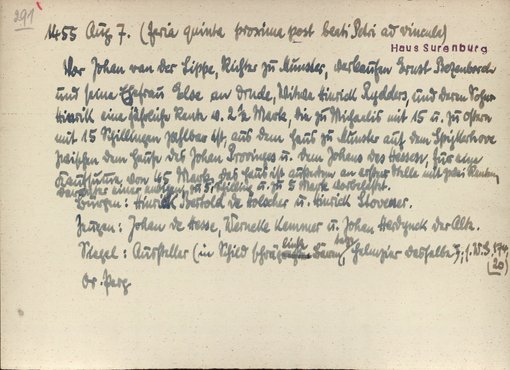 291
1455 Aug 7. (feria quinta proxima post beati Petri ad vincula)
Haus Surenburg
Vor Johan van der Lippe, Richter zu Munster, verkaufen Ernst
und seine Ehefrau Else an Drude, Witwe Hinrich Rydders, und deren Sohn
Hinrik eine jährliche Rente v. 2½ Mark, die zu Michaelis mit 15 u. zu Ostern
mit 15 Schillingen zahlbar ist, aus dem Haus zu Munster auf dem
zwischen dem Hause des Johan u. dem Johans des Hessen, für eine
Kaufsumme von 45 Mark. Das Haus ist außerdem an erster Stelle mit zwei Renten,
einer zu 5 Schilling u. zu 5 Mark vorbelastet.
Bürgen: Hinrick Bertold de Holscher u. Hinrick Stovener.
Zeugen: Johan de Hesse, Wernelke Kemmer u. Johan Hardynck der Alte.
Siegel: Aussteller (in Schild schräg links, Helmzier dasselbe); (. W.S. 174,
(20)
Or. Perg.